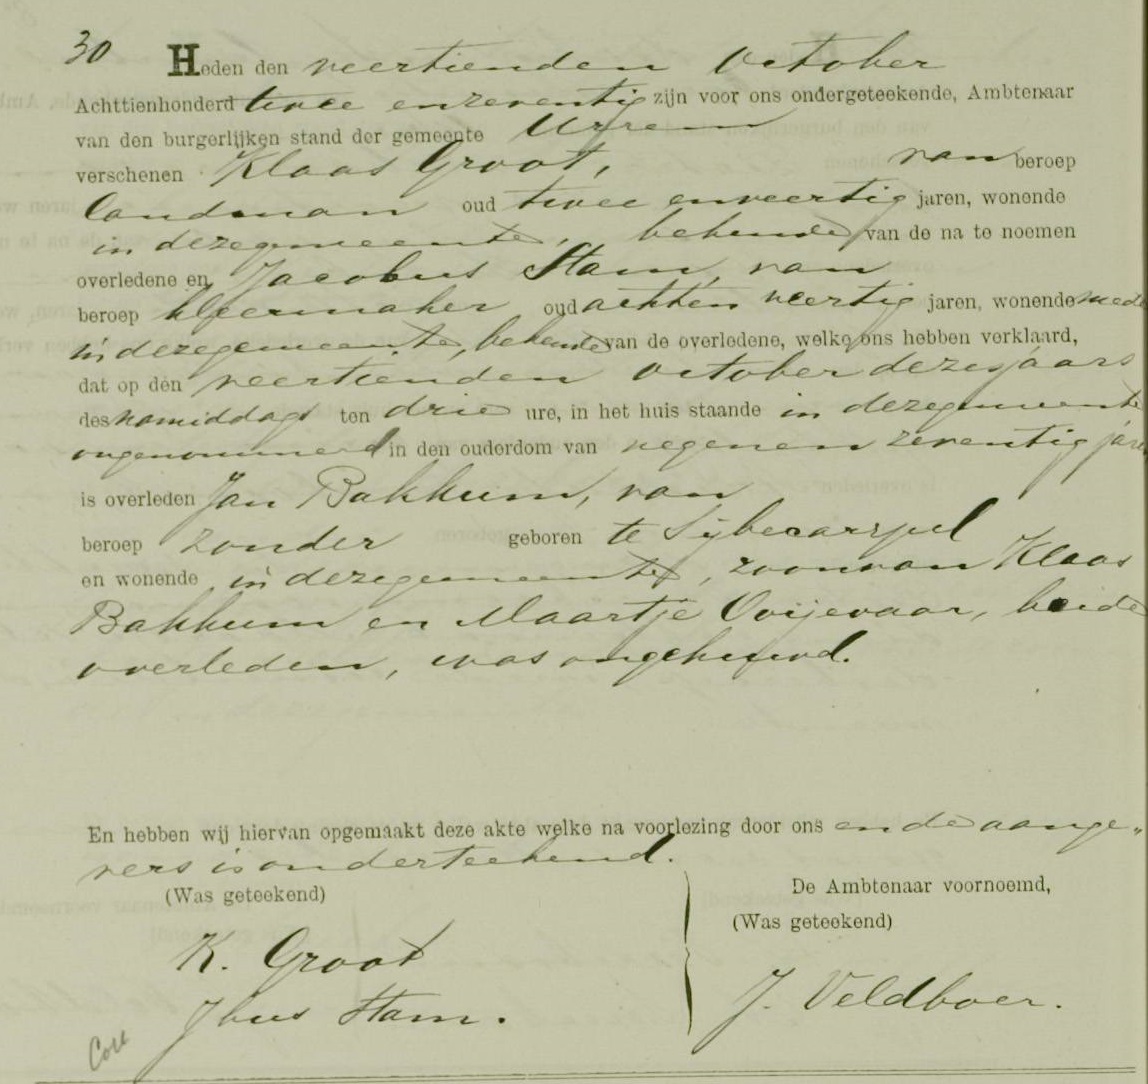 30 Heden den veertienden October
Achttienhonderd twee enzeventig zijn voor ons ondergeteekende, Ambtenaar
van den burgerlijken stand der gemeente Ursem
verschenen Klaas Groot, van beroep
landman oud twee enveertig jaren, wonende
in dezegemeente, bekende van de na te noemen
overledene en Jacobus Stam, van
beroep kleermaker oud achten veertig jaren, wonende mede
in dezegemeente, bekende van de overledene, welke ons hebben verklaard,
dat op den veertienden october dezesjaars
des namiddags ten drie ure, in het huis staande in dezegemeente
ongenommerd in den ouderdom van negenen zeventig jaren
is overleden Jan Bakkum, van
beroep zonder geboren te Sijbecarspel
en wonende in dezegemeente, zoonvan Klaas
Bakkum en Maartje Ooijevaar, beide
overleden, was ongehuwd.
En hebben wij hiervan opgemaakt deze akte welke na voorlezing door ons en de aange„
vers is onderteekend.
(Was geteekend) De Ambtenaar voornoemd,
(Was geteekend)
K. Groot
Jbus Stam. J. Veldboer.